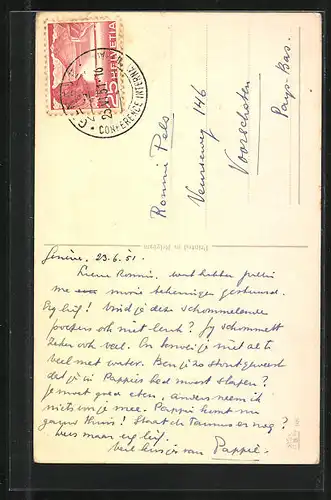 HELVETIA
25
CONFERENCE INTERNA
Ronnie Pels
Veurseweg 146
Voorschoten
Pays-Bas.
Printed in
Genève. 23.6.51.
Lieve Ronnie. wat hebben jullie
me mooie tekeningen gestuurd.
Erg lief! Vind je deze schommelende
poesjes ook niet leuk? Jij schommelt
zeker ook veel. En knoei je niet al te
veel met water. Ben je zo stout geweest
dat je in Pappies bed moest slapen?
Je moet goed eten, anders neem ik
niets voor je mee. Pappie komt nu
gauw thuis! Staat de Taunus er nog?
Wees maar erg lief.
Veel kusjes van Pappie.